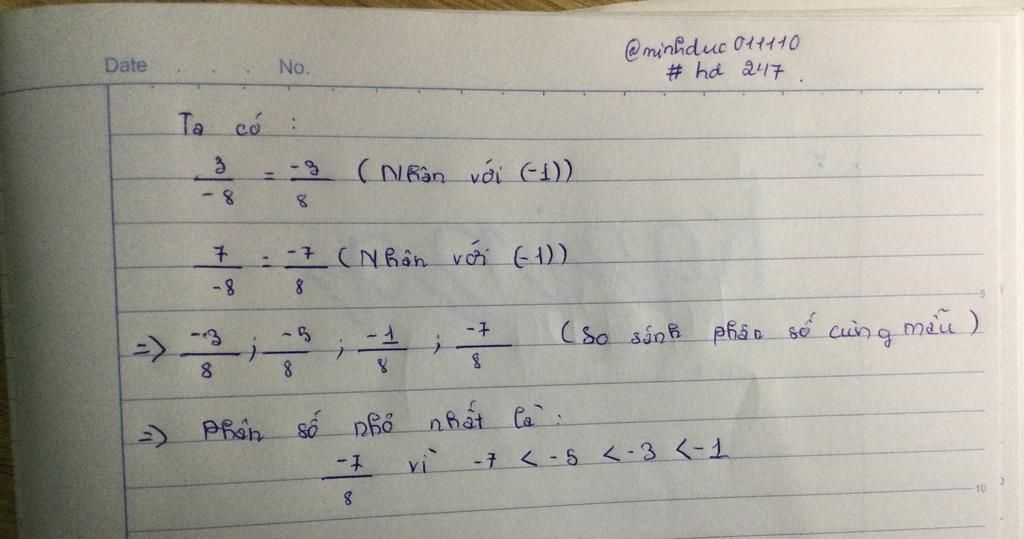 @minhduc011110
Date . . . No.
# hd 247 .
Ta có :
3/-8 = -3/8 (Nhân với (-1))
7/-8 = -7/8 (Nhân với (-1))
=> -3/8 ; -5/8 ; -1/8 ; -7/8 (So sánh phân số cùng mẫu)
5
=> Phân số nhỏ nhất là :
-7/8 vì -7 < -5 < -3 < -1
10